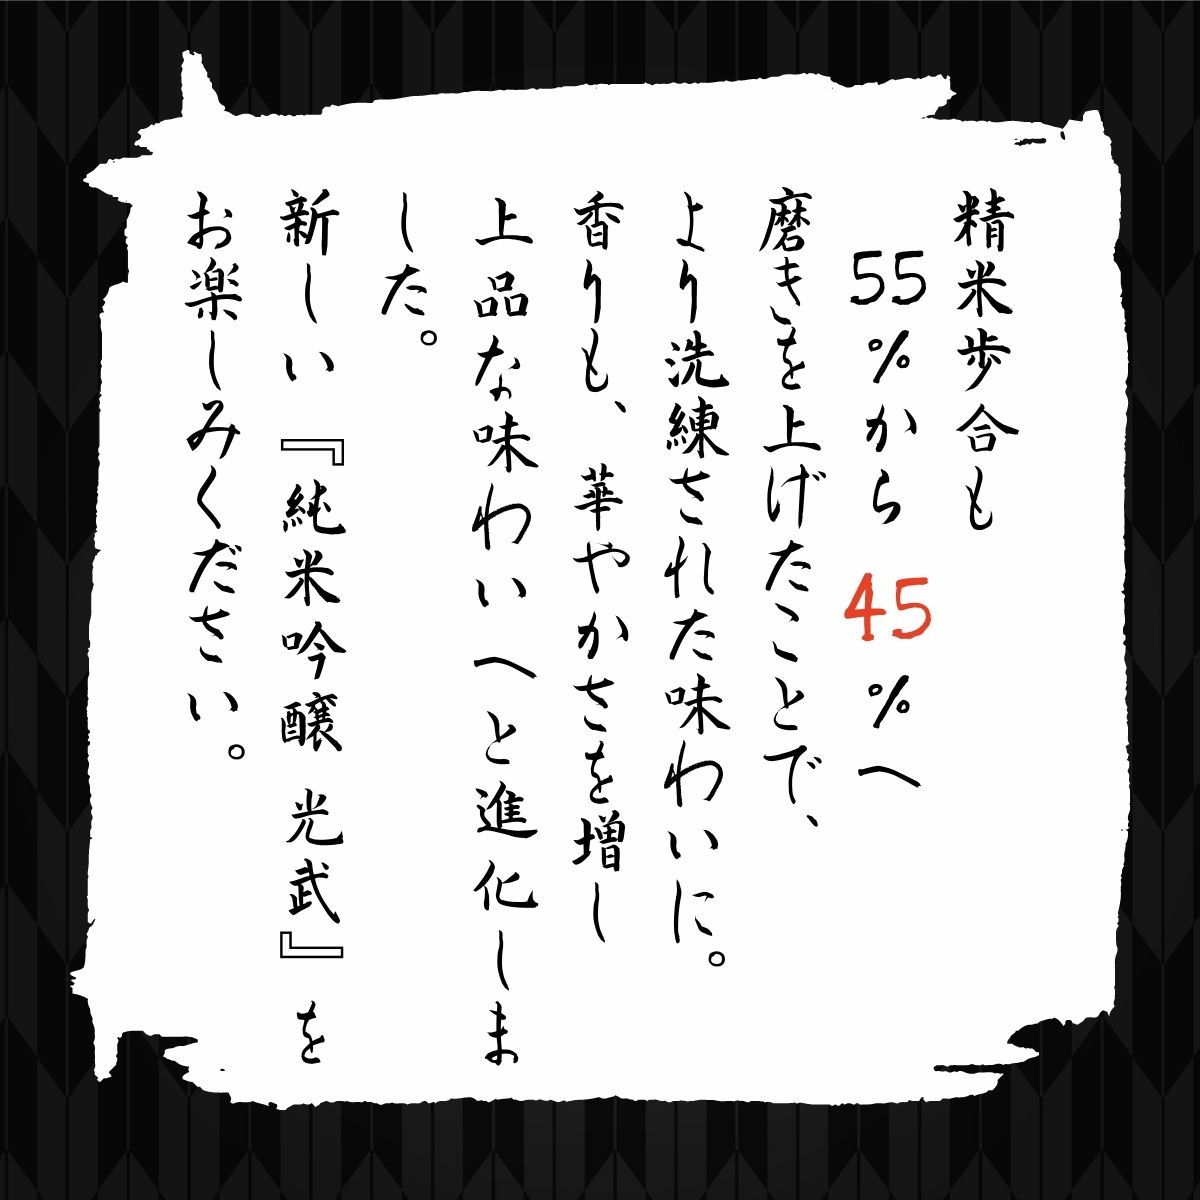 精米歩合も
55%から45%へ
磨きを上げたことで、
より洗練された味わいに。
香りも、華やかさを増し
上品な味わいへと進化しま
した。
新しい『純米吟醸 光武』を
お楽しみください。